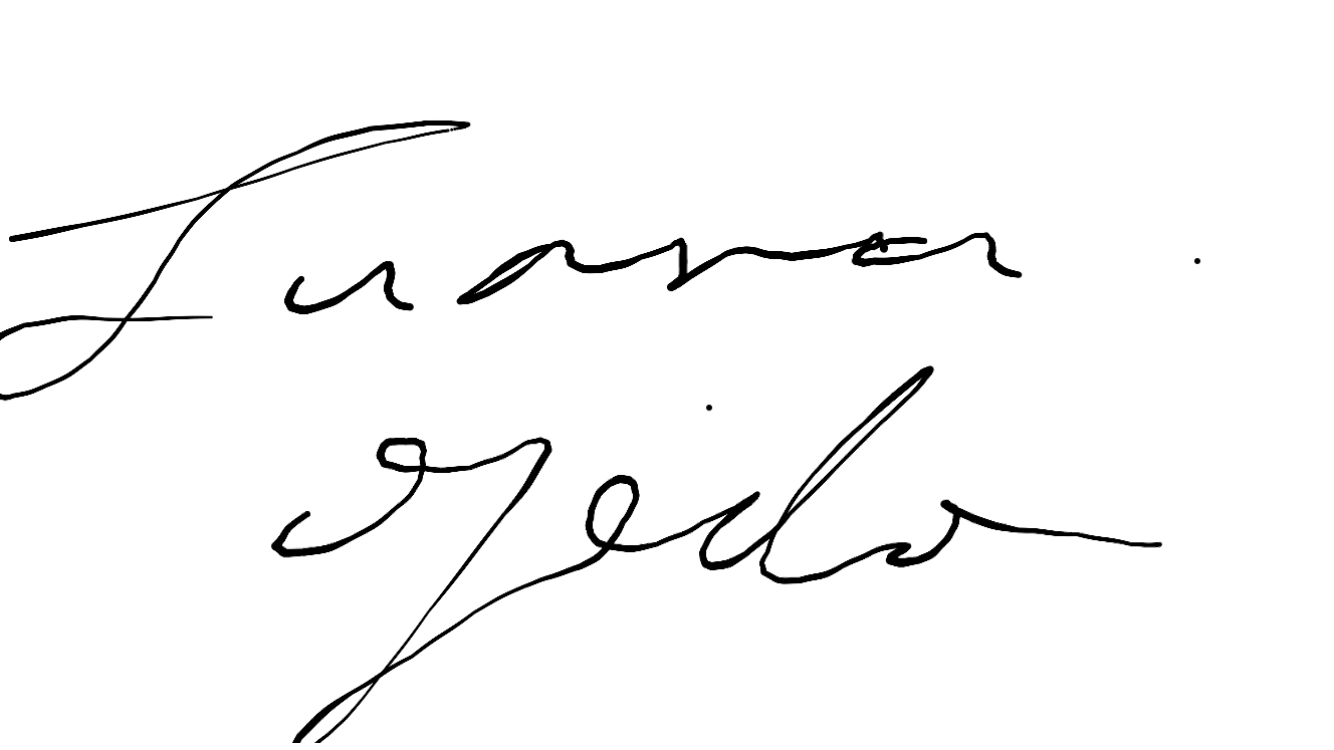 Juana
Ojeda